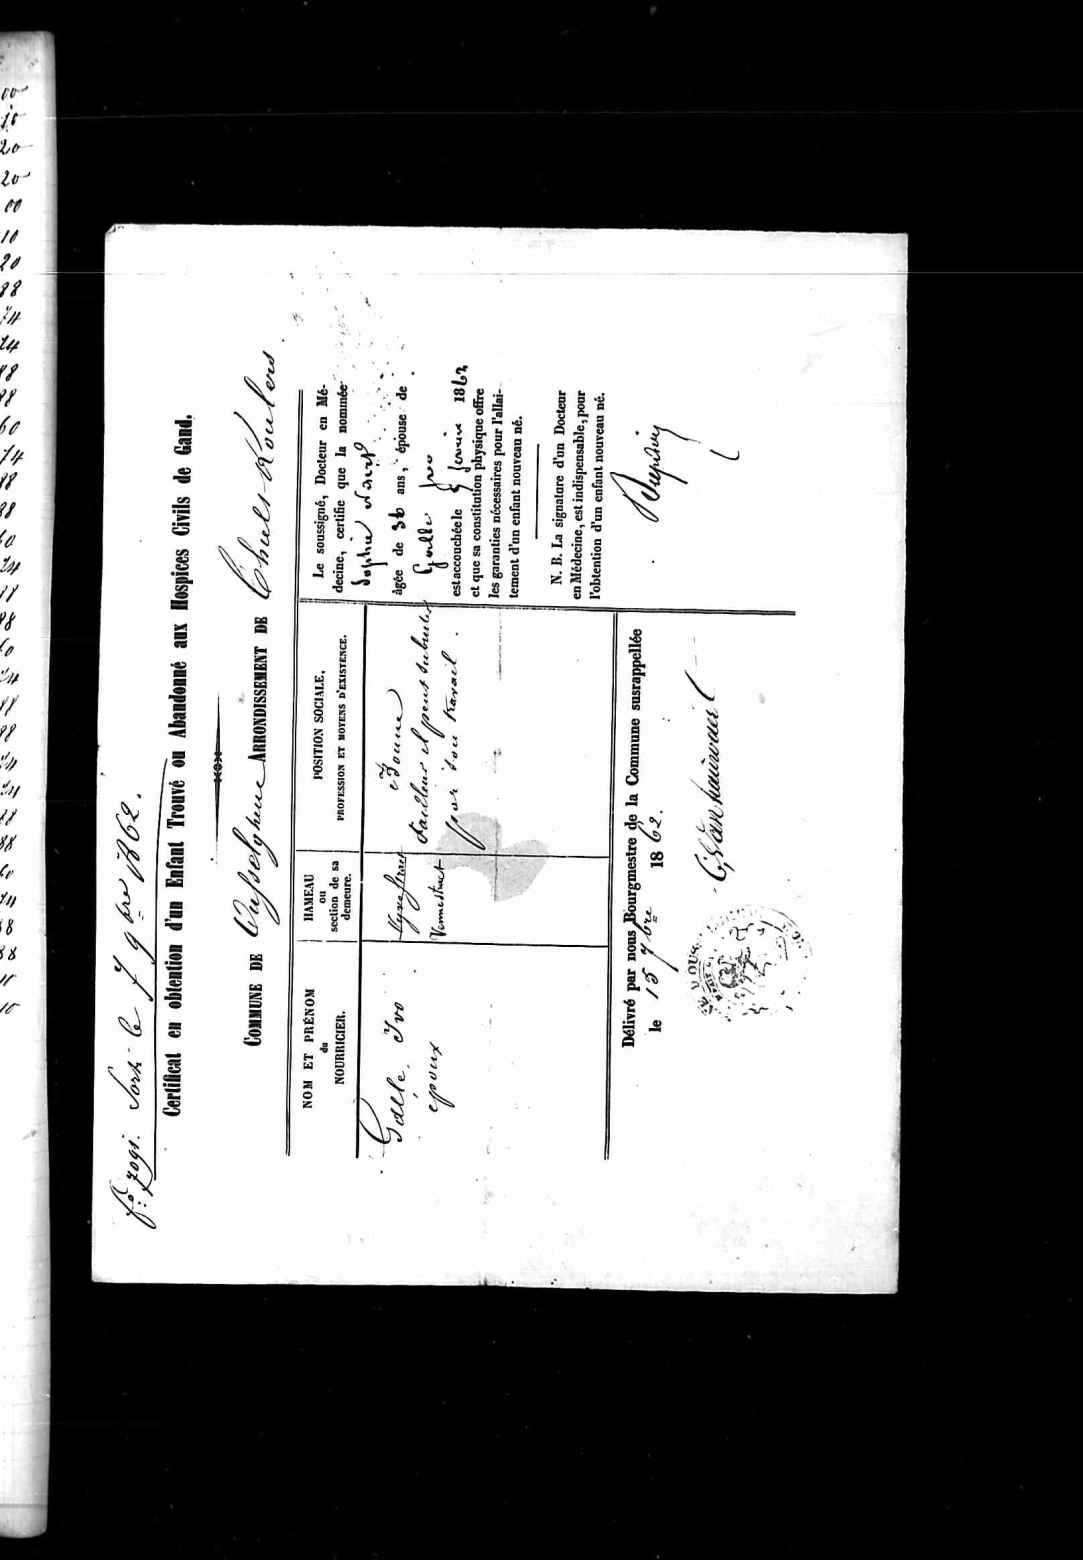 fo: 7091. Sorti le 7 9bre 1862.
Certificat en obtention d'un Enfant Trouvé ou Abandonné aux Hospices Civils de Gand.
COMMUNE DE Oesselghem ARRONDISSEMENT DE Thielt-Roulers
NOM ET PRÉNOM
du
NOURRICIER.
HAMEAU
ou
section de sa
demeure.
POSITION SOCIALE,
PROFESSION ET MOYENS D'EXISTENCE.
Gallé. Ivo
époux
Bonne
tailleur et peut subsister
par son travail.
Le soussigné, Docteur en Mé-
decine, certifie que la nommée
Sophie
âgée de 36 ans, épouse de
Gallé Ivo
est accouchée le 1862
et que sa constitution physique offre
les garanties nécessaires pour l'allai-
tement d'un enfant nouveau né.
N. B. La signature d'un Docteur
en Médecine, est indispensable, pour
l'obtention d'un enfant nouveau né.
Délivré par nous Bourgmestre de la Commune susrappellée
le 15 7bre 1862.
00
10
20
20
00
10
20
88
74
74
88
88
60
74
88
88
60
74
88
88
60
74
88
88
74
74
88
88
60
74
88
88